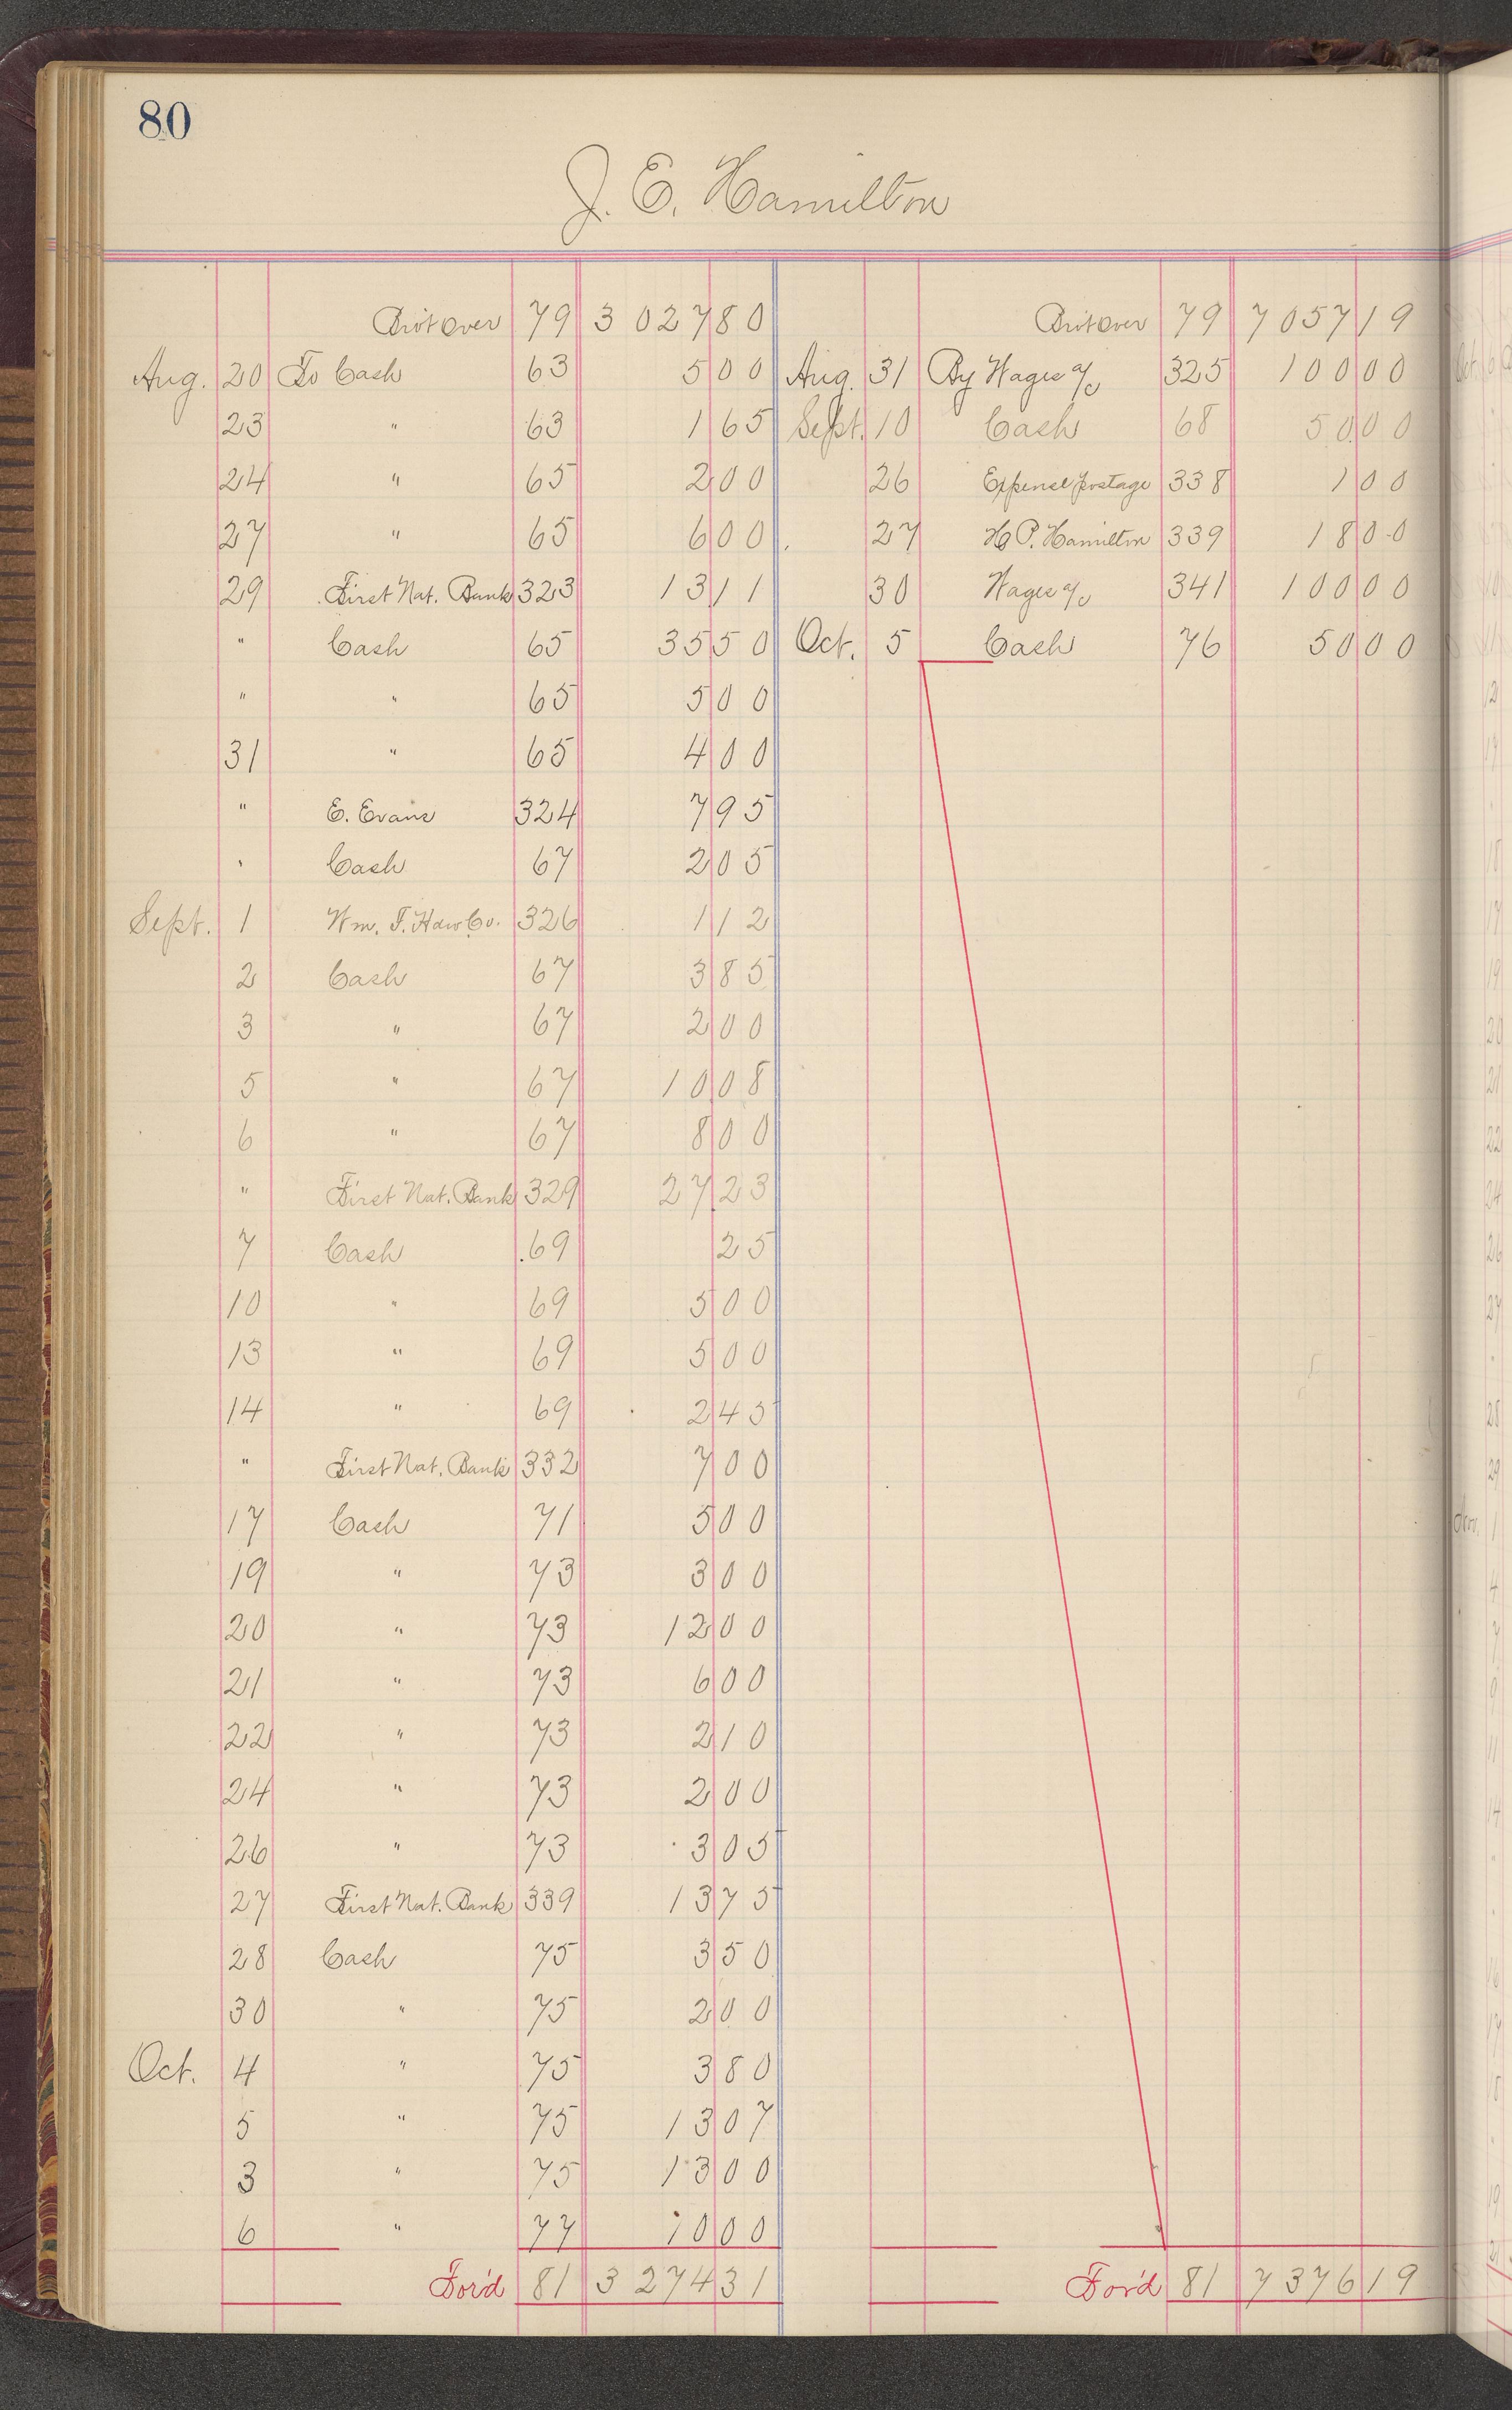 80
J. E. Hamilton
Bro't over 79 3 027 80
Aug. 20 To Cash 63 5 00
23 " 63 1 65
24 " 65 2 00
27 " 65 6 00
29 First Nat. Bank 323 13 11
" Cash 65 35 50
" " 65 5 00
31 " 65 4 00
" E. Evans 324 7 95
" Cash 67 2 05
Sept. 1 Wm. F. Haw Co. 326 1 12
2 Cash 67 3 85
3 " 67 2 00
5 " 67 10 08
6 " 67 8 00
" First Nat. Bank 329 27 23
7 Cash 69 25
10 " 69 5 00
13 " 69 5 00
14 " 69 2 45
" First Nat. Bank 332 7 00
17 Cash 71 5 00
19 " 73 3 00
20 " 73 12 00
21 " 73 6 00
22 " 73 2 10
24 " 73 2 00
26 " 73 3 05
27 First Nat. Bank 339 13 75
28 Cash 75 3 50
30 " 75 2 00
Oct. 4 " 75 3 80
5 " 75 13 07
3 " 75 13 00
6 " 77 10 00
For'd 81 3 274 31
Bro't over 79 7 057 19
Aug. 31 By Wages a/c 325 100 00
Sept. 10 Cash 68 50 00
26 Expense postage 338 1 00
27 H. P. Hamilton 339 18 00
30 Wages a/c 341 100 00
Oct. 5 Cash 76 50 00
For'd 81 7 376 19